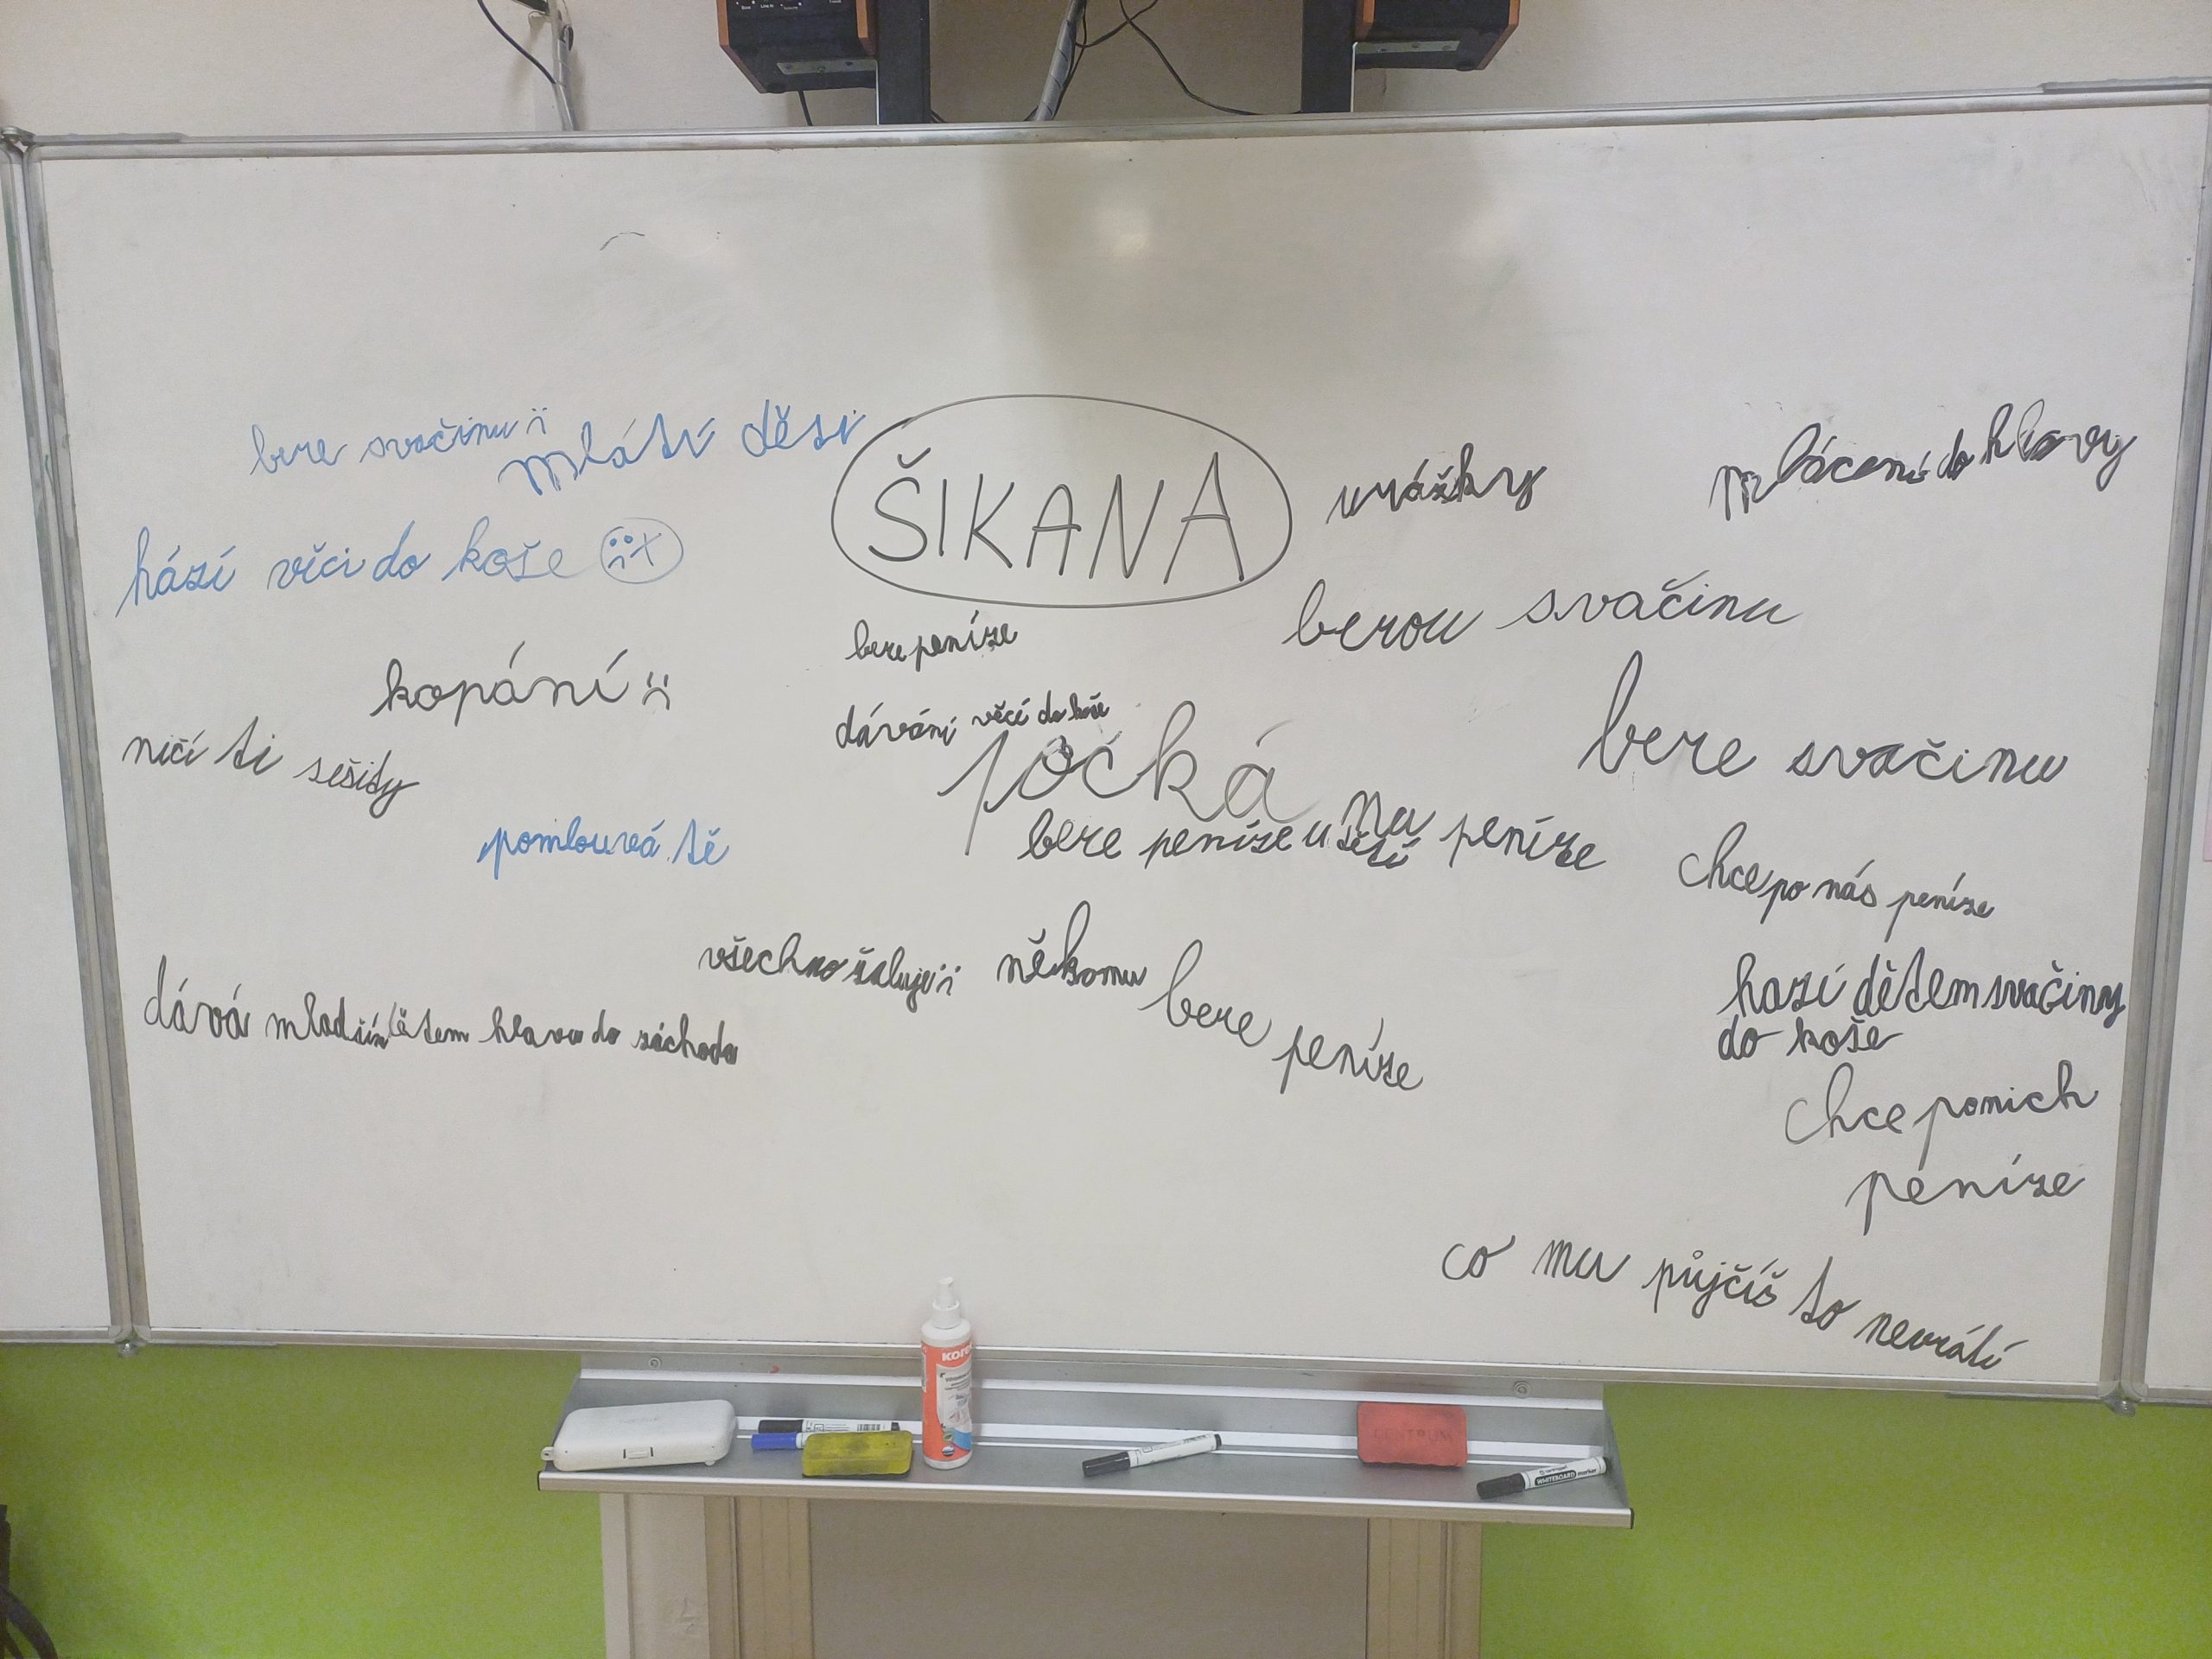 bere svačinu :(
mlátí děti
ŠIKANA
urážky
mlácení do hlavy
hází věci do koše
berou svačinu
kopání :(
bere peníze
ničí ti sešity
dávání věcí do koše
bere svačinu
počká na peníze
bere peníze u
pomlouvá tě
chce po nás peníze
všechno žaluje
někomu bere peníze
dává mladším dětem hlavu do záchoda
hazí dětem svačiny
do koše
chce ponich
peníze
co mu půjčíš to nevrátí
KORES
CENTRUM
WHITEBOARD marker